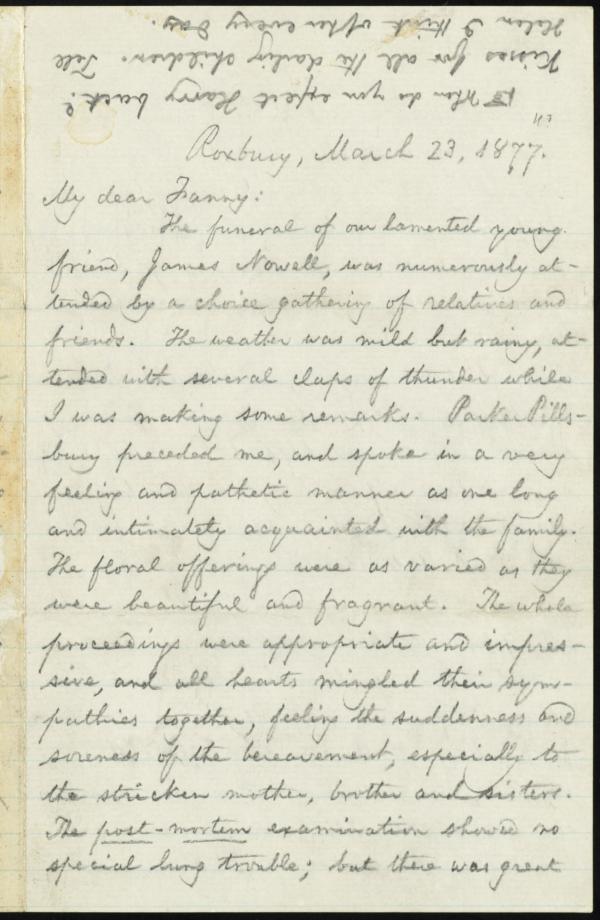 When do you expect Harry back?
Kisses for all the darling children. Tell
Helen I think of her every day.
Roxbury, March 23, 1877.
My dear Fanny:
The funeral of our lamented young
friend, James Nowell, was numerously at-
tended by a choice gathering of relatives and
friends. The weather was mild but rainy, at-
tended with several claps of thunder while
I was making some remarks. Parker Pills-
bury preceded me, and spoke in a very
feeling and pathetic manner as one long
and intimately acquainted with the family.
The floral offerings were as varied as they
were beautiful and fragrant. The whole
proceedings were appropriate and impres-
sive, and all hearts mingled their sym-
pathies together, feeling the suddenness and
soreness of the bereavement, especially to
the stricken mother, brother and sisters.
The post-mortem examination showed no
special lung trouble; but there was great